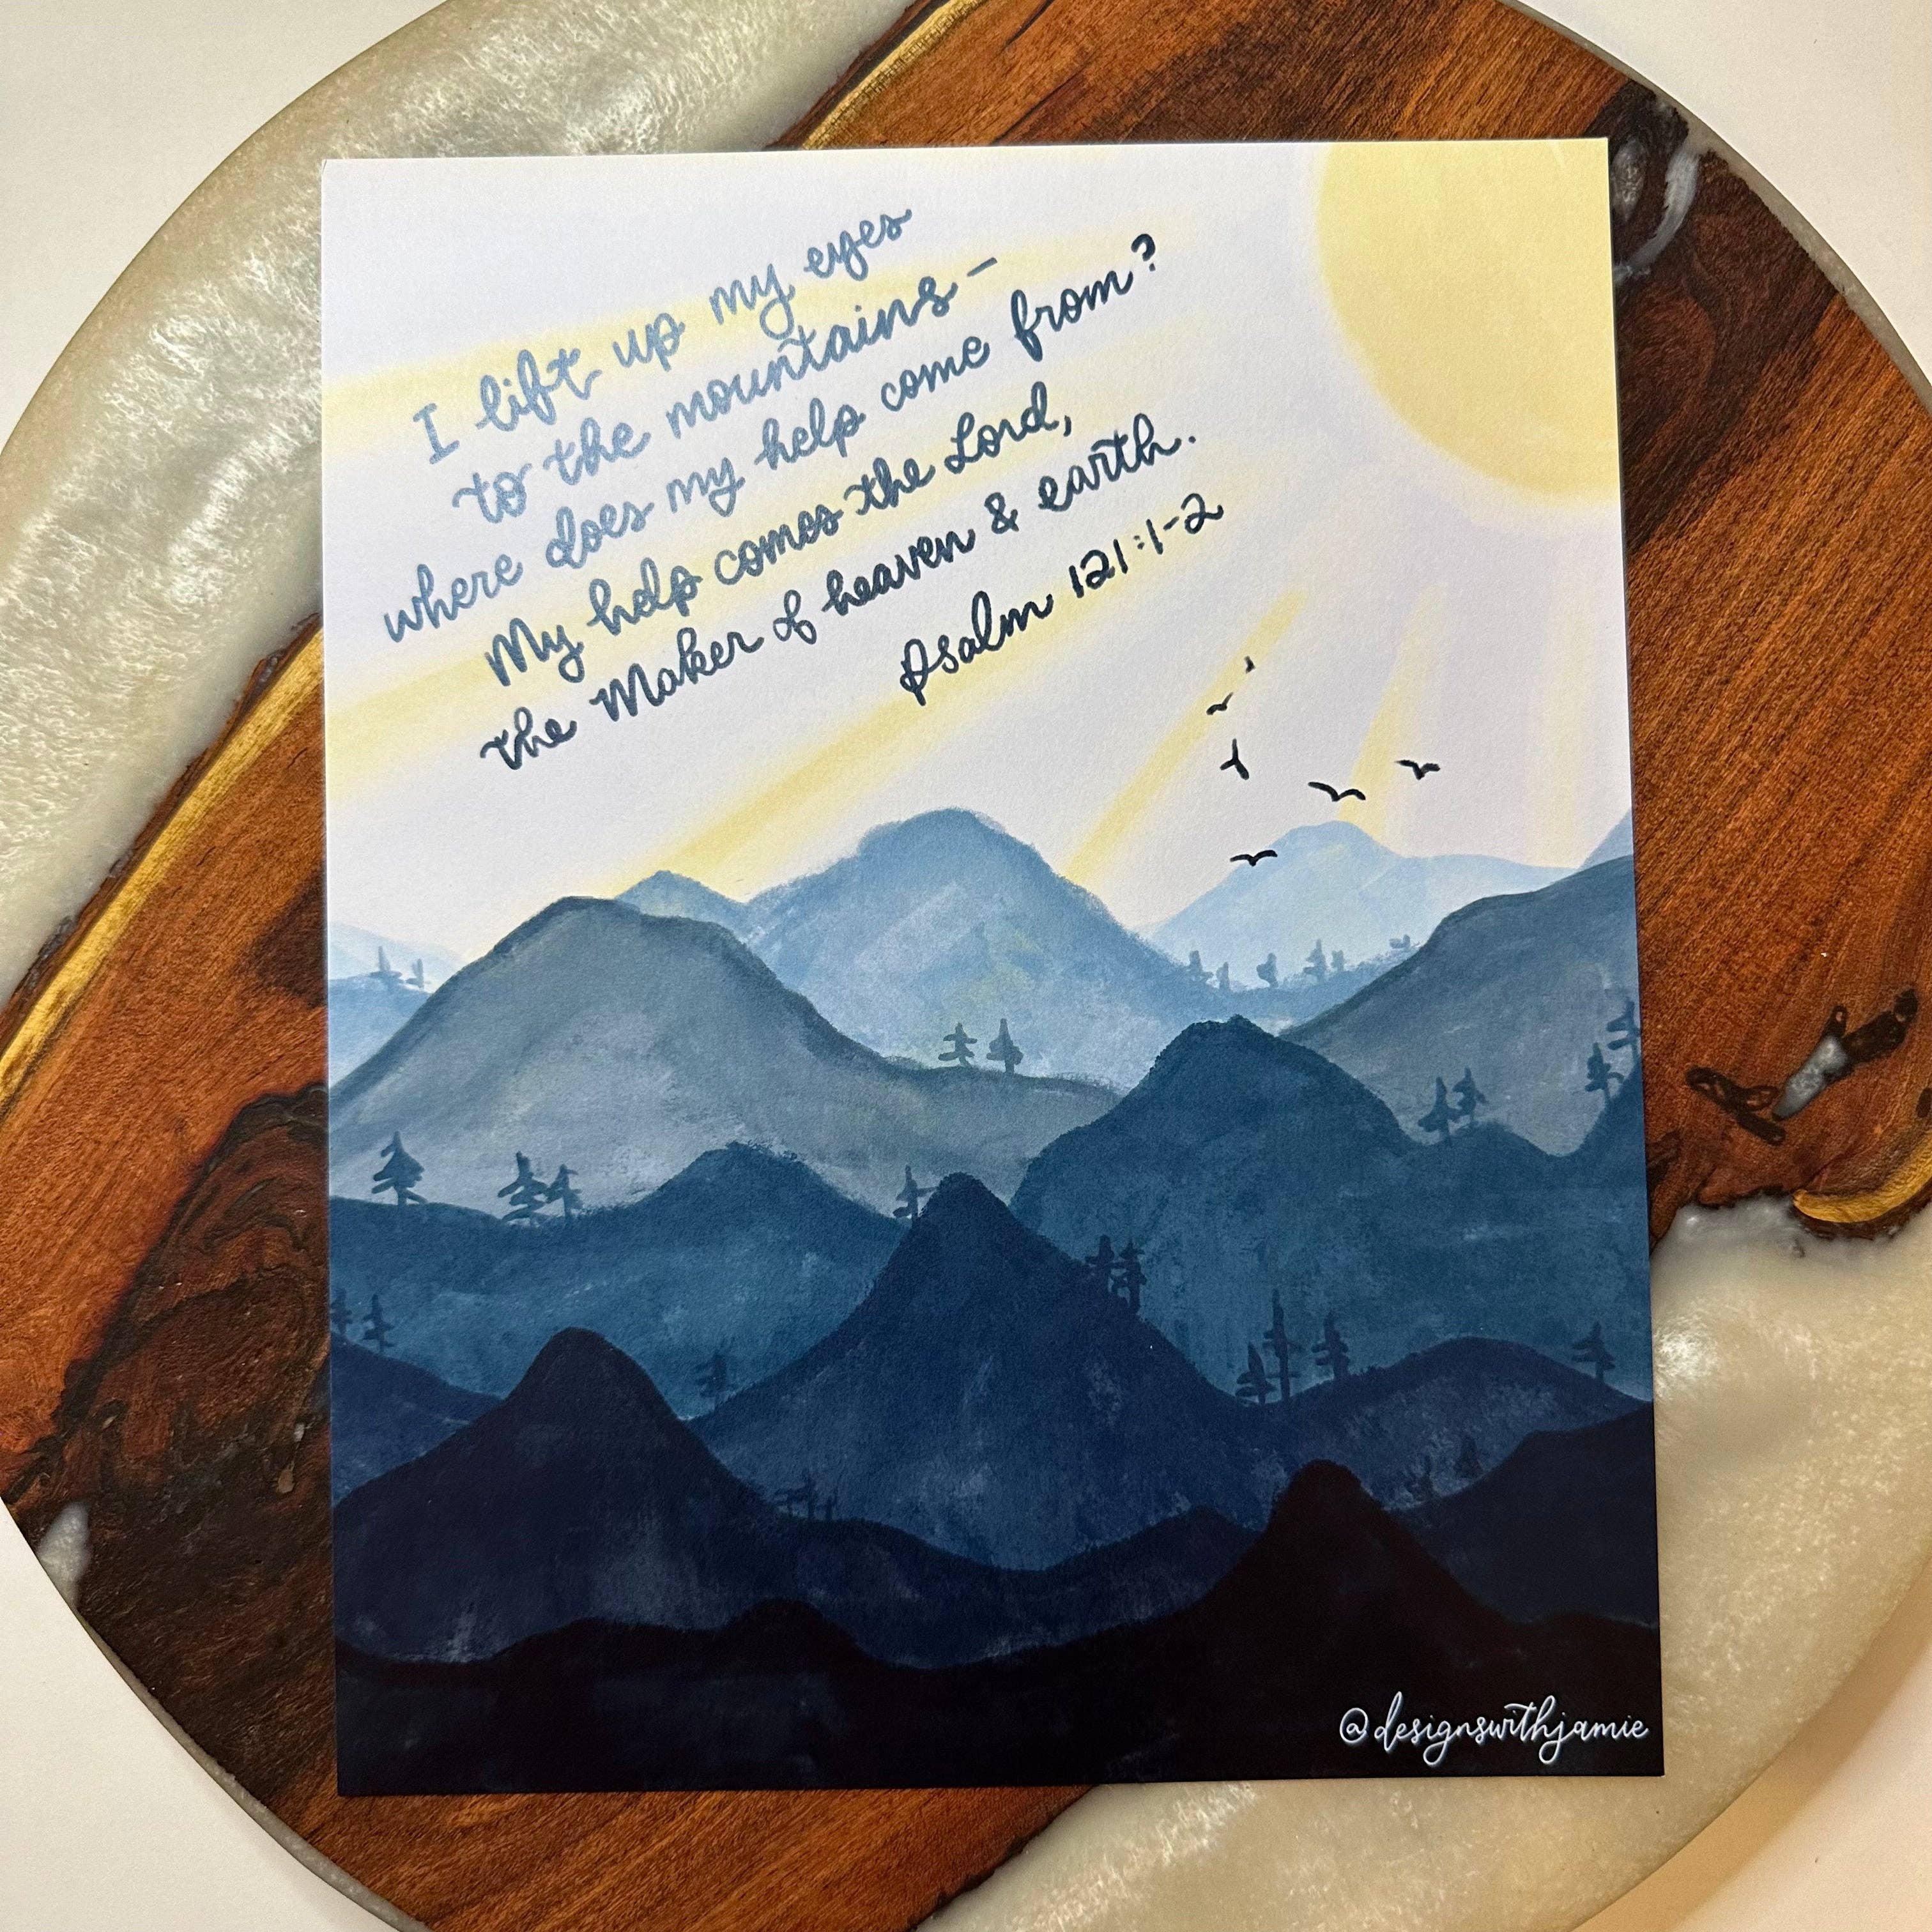 I lift up my eyes
to the mountains –
where does my help come from?
My help comes the Lord,
the Maker of heaven & earth.
Psalm 121:1-2
@designswithjamie